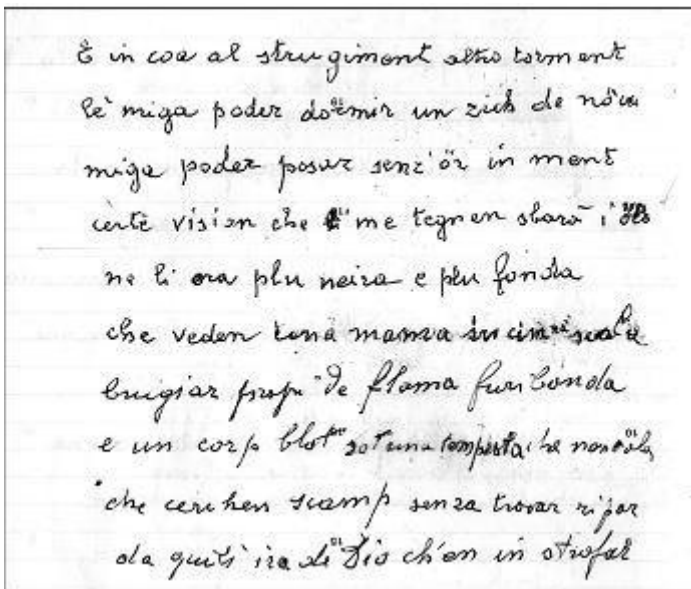 E in coa al strugiment altro torment
l'è miga poder dormir un zich de nöcc
miga poder posar senz'ör in ment
certe vision che me tegnen sbarà i
ne li ora plu neira e plu fonda
che veden una manza in
brugiar propi de flama furibonda
e un corp blot sot una tempesta che
che cerchen scamp senza trovar ripar
da quest' ira de Dio ch'en in